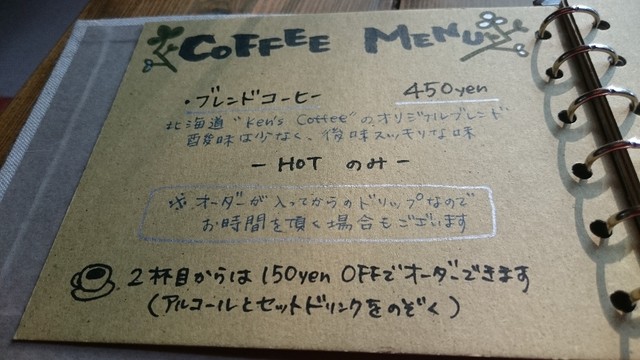 COFFEE MENU
・ブレンドコーヒー 450yen
北海道"Ken's Coffee"のオリジナルブレンド
酸味は少なく、後味スッキリな味
ー HOT のみ ー
※オーダーが入ってからのドリップなので
お時間を頂く場合もございます
2杯目からは150yen OFFでオーダーできます
(アルコールとセットドリンクをのぞく)